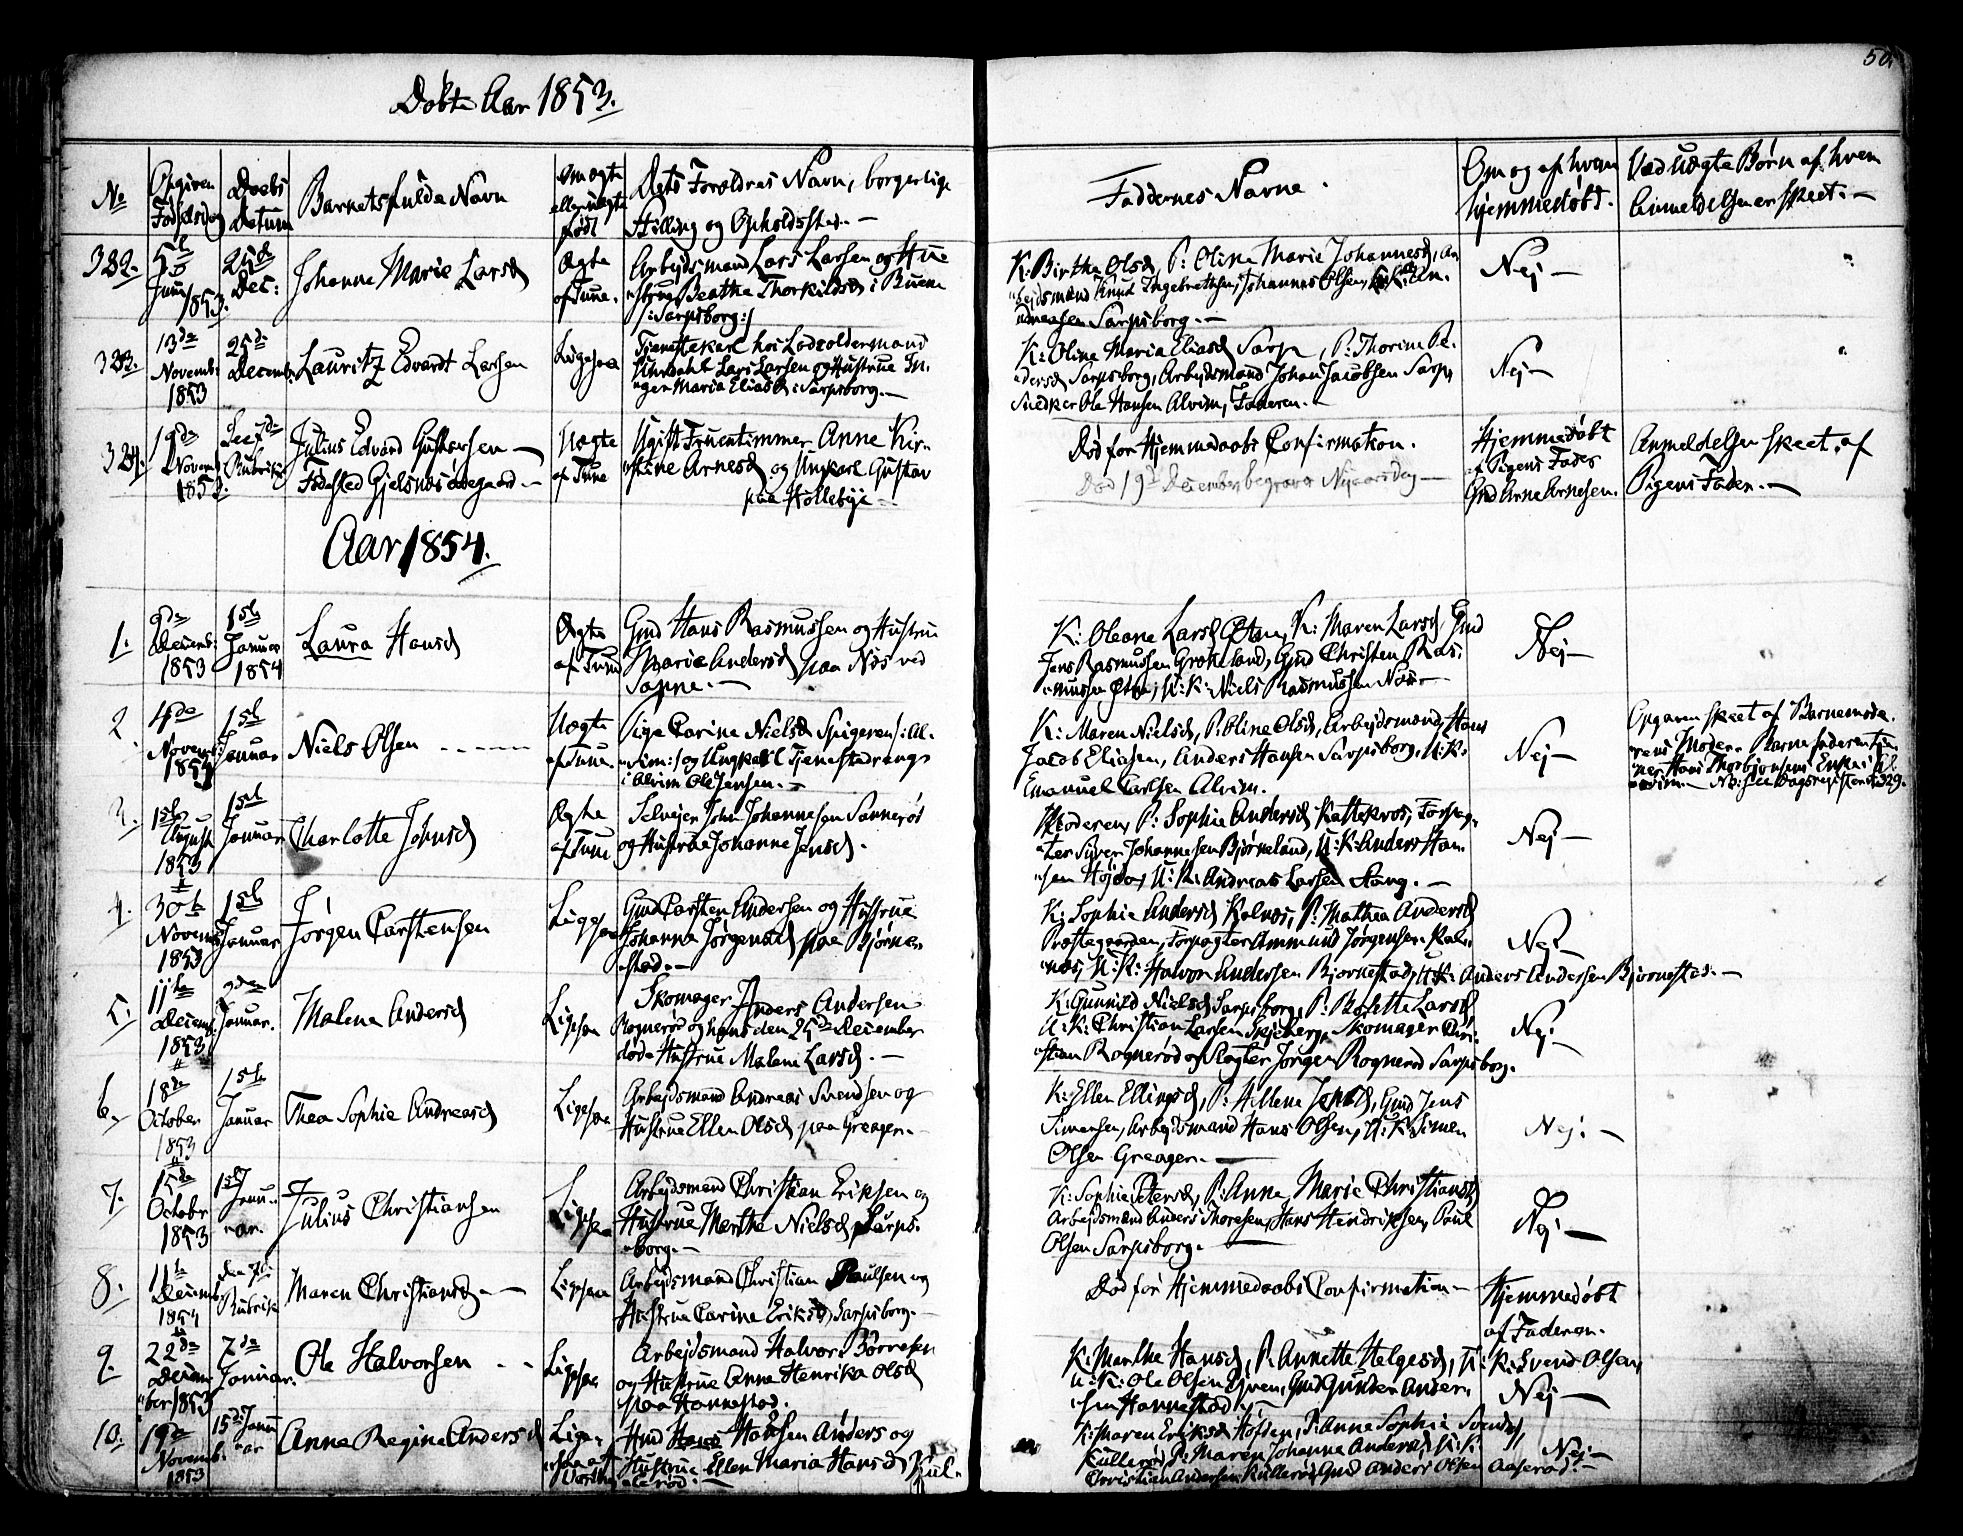 Døbte Aar 1853.
50.
No
Opgiven
Fødselsdag
Daabs
Datum
Barnets fulde Navn
Om ægte
eller uægte
født
Dets Forældres Navn, borgerlige
Stilling og Opholdssted.—
Faddernes Navne.
Om og af hvem
hjemmedøbt.
Ved Uægte Børn af hvem
Anmeldelsen er skeet.—
322.
5te
Juni
1853.
25de
Dec:
Johanne Marie Larsd
Ægte
af Tune.
Arbejdsmand Lars Larsen og Hu-
strue Beathe Thorkildsd i
/:Sarpsborg:/
K: Birthe Olsd P: Oline Marie Johannesd, Ar
bejdsmænd Knud Ingebretsen, Johannes Olsen,
Sarpsborg.—
Nej—
323.
13de
Novemb:
1853
25de
Decemb:
Lauritz Edvardt Larsen
Ligesaa
Tjenestekarl hos Lodsoldermand
Lars Larsen og Hustrue In-
ger Maria Eliasd i Sarpsborg.—
K: Oline Maria Eliasd Sarp, P: Thorine Pe-
dersd Sarpsborg, Arbejdsmand Johan Jacobsen Sarp,
Snedker Ole Hansen Alvim, Faderen.—
Nej—
324.
19de
Novemb
1853.
See 7de
Rubrik
Julius Edvard Gustavsen—
Fødested Gjelsnæs ødegaard—
Uægte
af Tune
Ugift Fruentimmer Anne Kir-
stine Arnesd og Ungkarl Gustav
paa Hollebye—
Død før Hjemmedaabs Confirmation.
Død 19de December begravet Nyaarsdag—
Hjemmedøbt
af Pigens Fader
Gmd Arne Arnesen.
Anmeldelsen skeet af
Pigens Fader.—
Aar 1854.
1.
9de
Decemb:
1853
1ste
Januar
1854
Laura Hansd
Ægte
af Tune
Gmd Hans Rasmussen og Hustrue
Marie Andersd paa Næs ved
Sanne.—
K: Oleane Larsd, K: Maren Larsd, Gmd
Jens Rasmussen Grokeland, Gmd Christen Ras-
mussen, U:K: Niels Rasmussen Næs—
Nej—
2.
4de
Novemb:
1853
1ste
Januar
Niels Olsen -----
Uægte
af Tune.
Pige Carine Nielsd Spigeren /:Al-
vim:/ og Ungkarl Tjenestedreng
i Alvim Ole Jensen.—
K: Maren Nielsd, P: Oline Olsd, Arbejdsmænd, Hans
Jacob Eliasen, Anders Hansen Sarpsborg, U:K:
Emanuel Carlsen Alvim.
Nej—
Opgaven skeet af Barnemode-
rens Moder. Barnefaderen
Hans Thorbjørnsens Enke i Al-
vim.— No: see Dagsregisteret 329.
3.
1ste
August
1853
1ste
Januar
Charlotte Johnsd
Ægte
af Tune
Selvejer John Johannesen Sannerød
og Hustrue Johanne Jensd.
Moderen, P: Sophie Andersd Kattekros, Forpag-
ter Siver Johannesen Bjørneland, U:K: Anders Han-
sen Højda, U:K: Andreas Larsen Stang.—
Nej—
4.
30te
Novemb
1853
1ste
Januar
Jørgen Carstensen
Ligesaa
Gmd Carsten Andersen og Hustrue
Johanne Jørgensd paa Bjørne-
stad.—
K: Sophie Andersd Kalnæs, P: Mathea Andersd
Præstegaarden, Forpagter Ammund Jørgensen Kal-
næs, U:K: Halvor Andersen Bjørnestad, U:K: Anders Andersen Bjørnestad.—
Nej—
5.
11te
Decemb.
1853
Januar.
Malene Andersd
Ligesaa
Skomager Anders Andersen
Rognerød og hans den 25de December
døde Hustrue Maleni Larsd.—
K: Gunnild Nielsd Sarpsborg, P: Larsd
U:K: Christian Larsen Skjeberg, Skomager Chri-
stian Rognerød og Slagter Jørgen Rognerød Sarpsborg.
Nej—
6.
18de
October
1853
1ste
Januar
Thea Sophie Andreasd
Ligesaa
Arbejdsmand Andreas Svendsen og
Hustrue Ellen Olsd paa Greager.—
K: Ellen Ellingsd, P: Hellene Jensd, Gmd Jens
Simensen, Arbejdsmand Hans Olsen, U:K: Simen
Olsen Greager.—
Nej—
7.
15de
October
1853
1ste
Janu-
ar.
Julius Christiansen
Ligesaa
Arbejdsmand Christian Eriksen og
Hustrue Marthe Nielsd Sarps-
borg.—
K: Sophie Petersd, P: Anne Marie Christiansd
Arbejdsmænd Anders Thoresen, Hans Hendriksen, Paul
Olsen Sarpsborg.
Nej—
8.
11te
Decemb
1854
See 7de
Rubrik
Maren Christiansd.—
Ligesaa
Arbejdsmand Christian Paulsen og
Hustrue Carine Eriksd, Sarpsborg.—
Død før Hjemmedaabs Confirmation—
Hjemmedøbt
af Faderen.
9.
22de
Decem
ber 1853
7de
Januar.
Ole Halvorsen --
Ligesaa
Arbejdsmand Halvor Børresen
og Hustrue Anne Henrika Olsd
paa Hannestad.
K: Marthe Hansd, P: Annette Helgesd, U:K: Svend Olsen,
U:K: Ole Olsen, Gmd Gunder Ander-
sen Hannestad.—
Nej—
10.
19de
Novemb.
1853
15de Janu
ar
Anne Regine Andersd
Lige-
saa af
Varteig
Hmd Hansen Anders og
Hustrue Ellen Maria Hansd Kul-
lerød.—
K: Maren Eriksd Hofsten, P: Anne Sophie Svendsd,
Kullerød, P: Maren Johanne Andersd, U:K:
Christian Andersen Kullerød, Gmd Anders Olsen Aaserød.—
Nej—